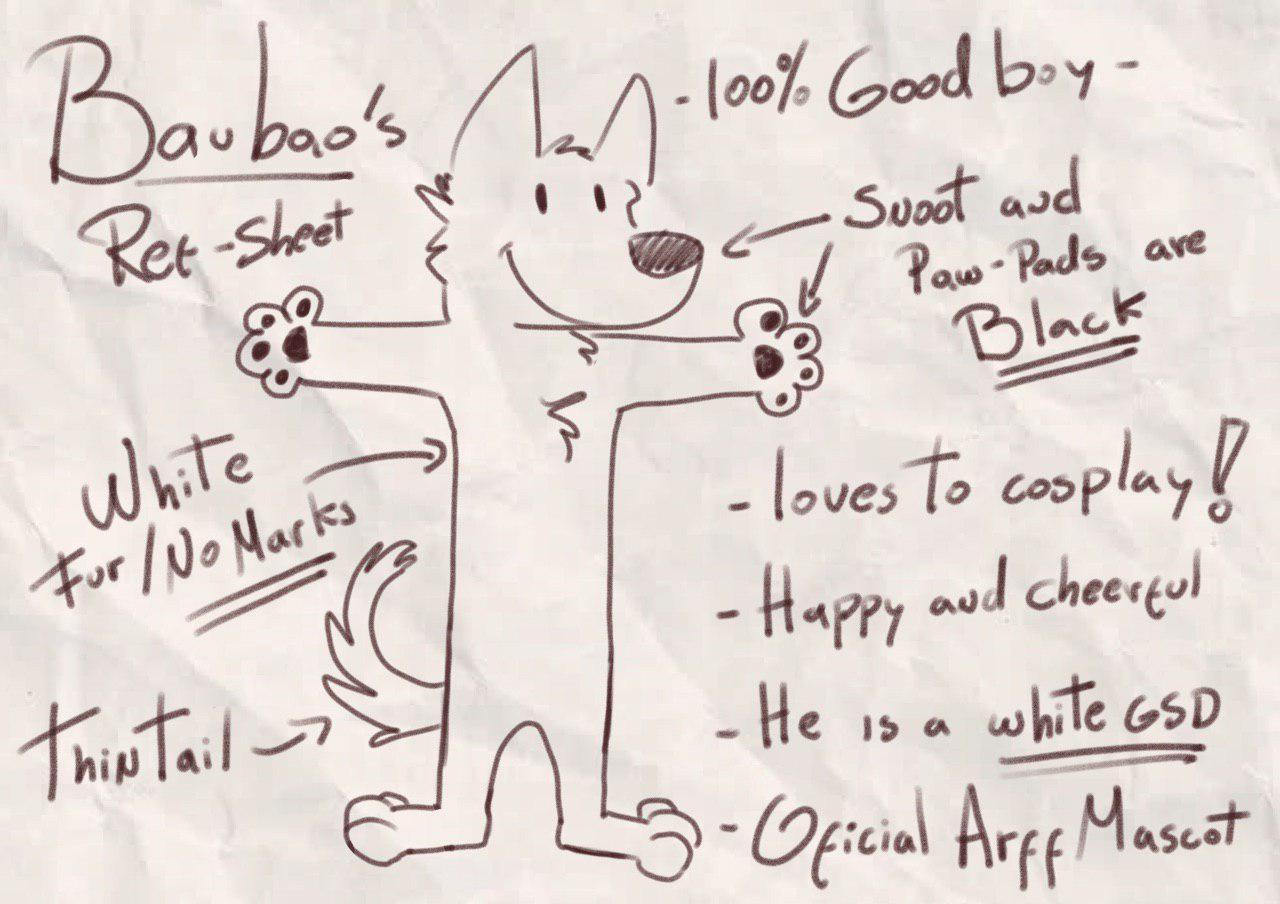 Baubao's
Ref-Sheet
-100% Good boy-
Snoot and
Paw-Pads are
Black
White
Fur/No Marks
Thin Tail
-loves to cosplay!
-Happy and cheerful
-He is a white GSD
-Oficial Arff Mascot